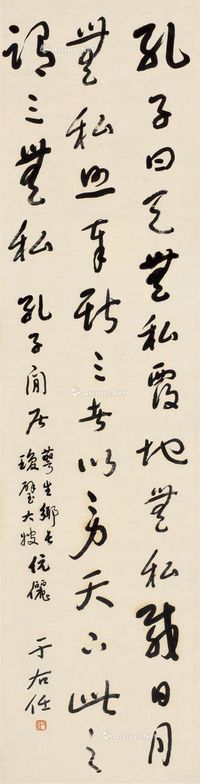 孔子曰天無私覆地無私載日月
無私照奉斯三者以勞天下此之
謂三無私 孔子閒居
夢生鄉長
瓊璧大嫂 伉儷
于右任